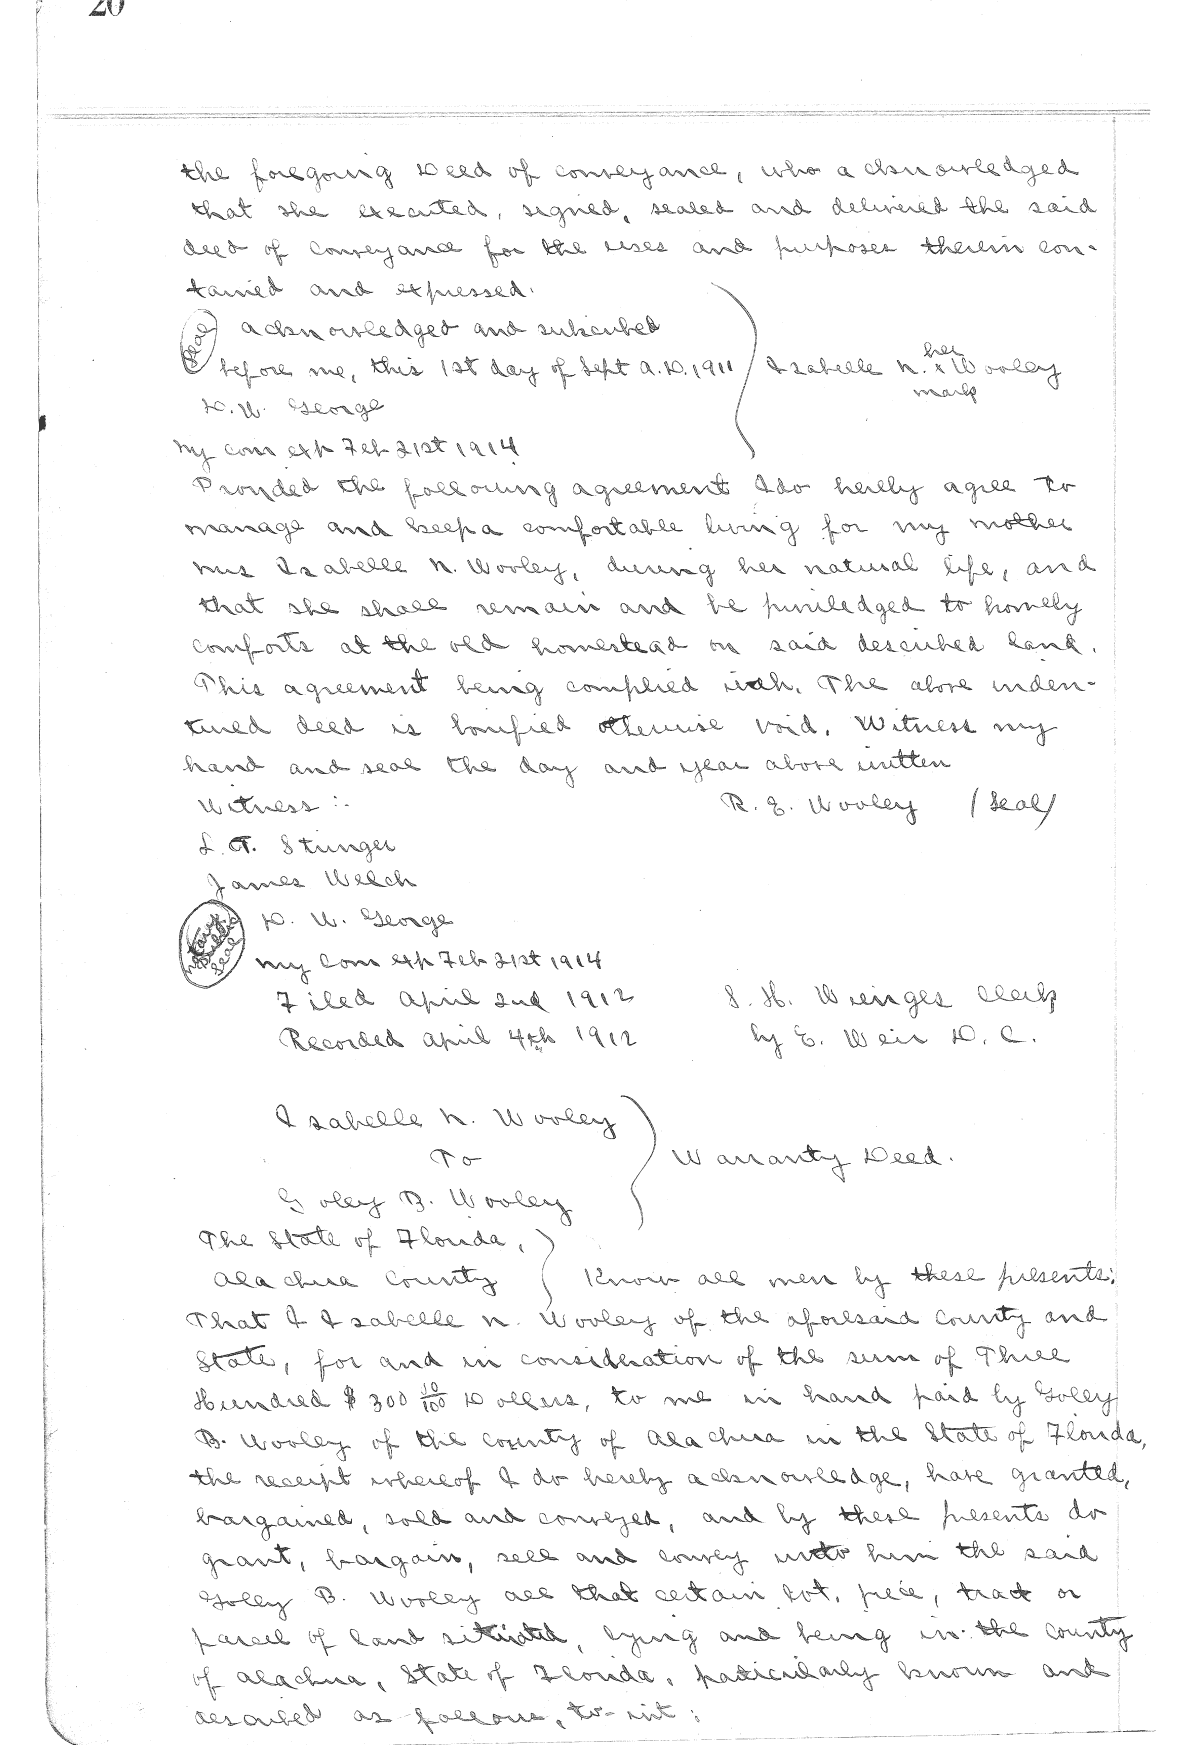 20
the foregoing Deed of conveyance, who acknowledged
that she executed, signed, sealed and delivered the said
deed of conveyance for the uses and purposes therein con-
tained and expressed.
Seal acknowledged and subscribed
before me, this 1st day of Sept A.D. 1911 Isabelle N. her x mark Wooley
D. W. George
My com exp Feb 21st 1914
Provided the following agreement I do hereby agree to
manage and keep a comfortable living for my mother
Mrs Isabelle N. Wooley, during her natural life, and
that she shall remain and be priviledged to homely
comforts at the old homestead on said described land.
This agreement being complied with. The above inden-
tured deed is bonified otherwise void. Witness my
hand and seal the day and year above written
Witness :- R. E. Wooley (Seal)
L. T. Stringer
James Welch
Notary Public Seal D. W. George
my Com exp Feb 21st 1914
Filed April 2nd 1912 S. H. Wienges Clerk
Recorded April 4th 1912 by E. Weir D. C.
Isabelle N. Wooley
To Warranty Deed.
Goley B. Wooley
The State of Florida,
Alachua County Know all men by these presents:
That I Isabelle N. Wooley of the aforesaid County and
State, for and in consideration of the sum of Three
Hundred $ 300 10/100 Dollers, to me in hand paid by Goley
B. Wooley of the county of Alachua in the State of Florida,
the receipt whereof I do hereby acknowledge, have granted,
bargained, sold and conveyed, and by these presents do
grant, bargain, sell and convey unto him the said
Goley B. Wooley all that certain lot, piece, tract or
parcel of land situated, lying and being in the county
of Alachua, State of Florida, particularly known and
described as follows, to-wit: